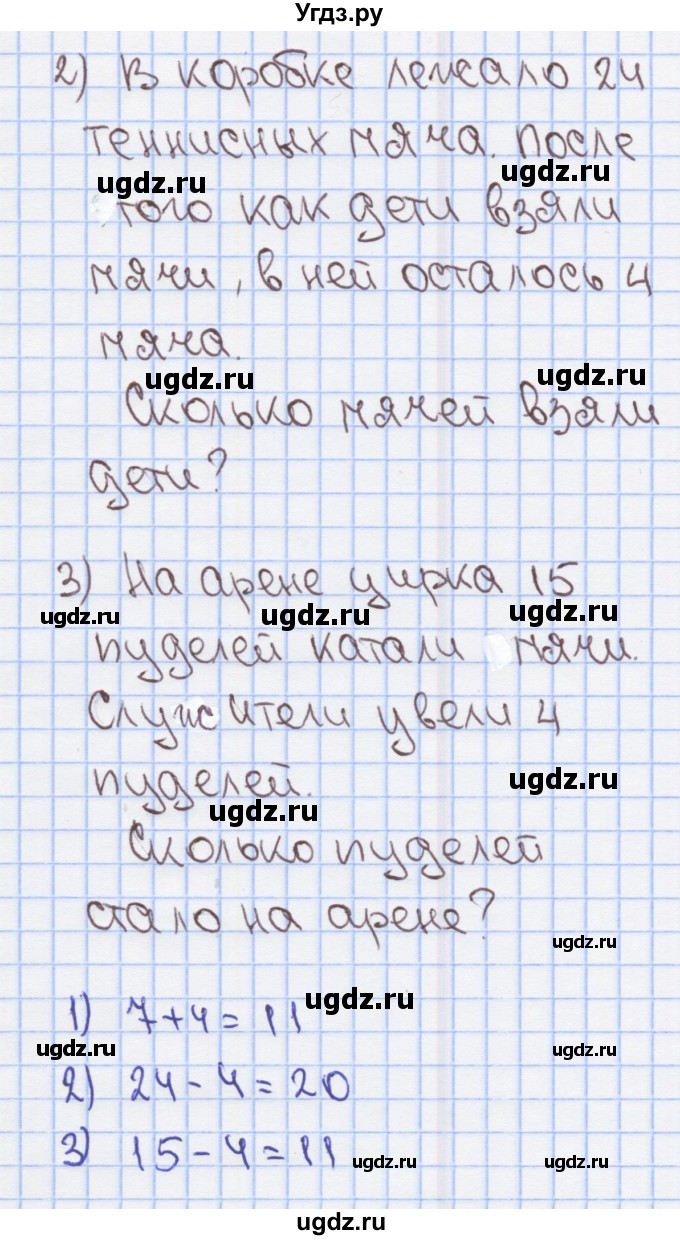 Угдз.ру
2) В коробке лежало 24
теннисных мяча. После
ugdz.ru
ugdz.ru
того как дети взяли
мячи, в ней осталось 4
мяча.
ugdz.ru
ugdz.ru
Сколько мячей взяли
дети?
3) На арене цирка 15
ugdz.ru
ugdz.ru
ugdz.ru
пуделей катали мячи.
Служители увели 4
пуделей.
ugdz.ru
ugdz.ru
Сколько пуделей
стало на арене?
ugdz.ru
1) 7+4=11
ugdz.ru
ugdz.ru
ugdz.ru
2) 24-4=20
3) 15-4=11
ugdz.ru
ugdz.ru
ugdz.ru